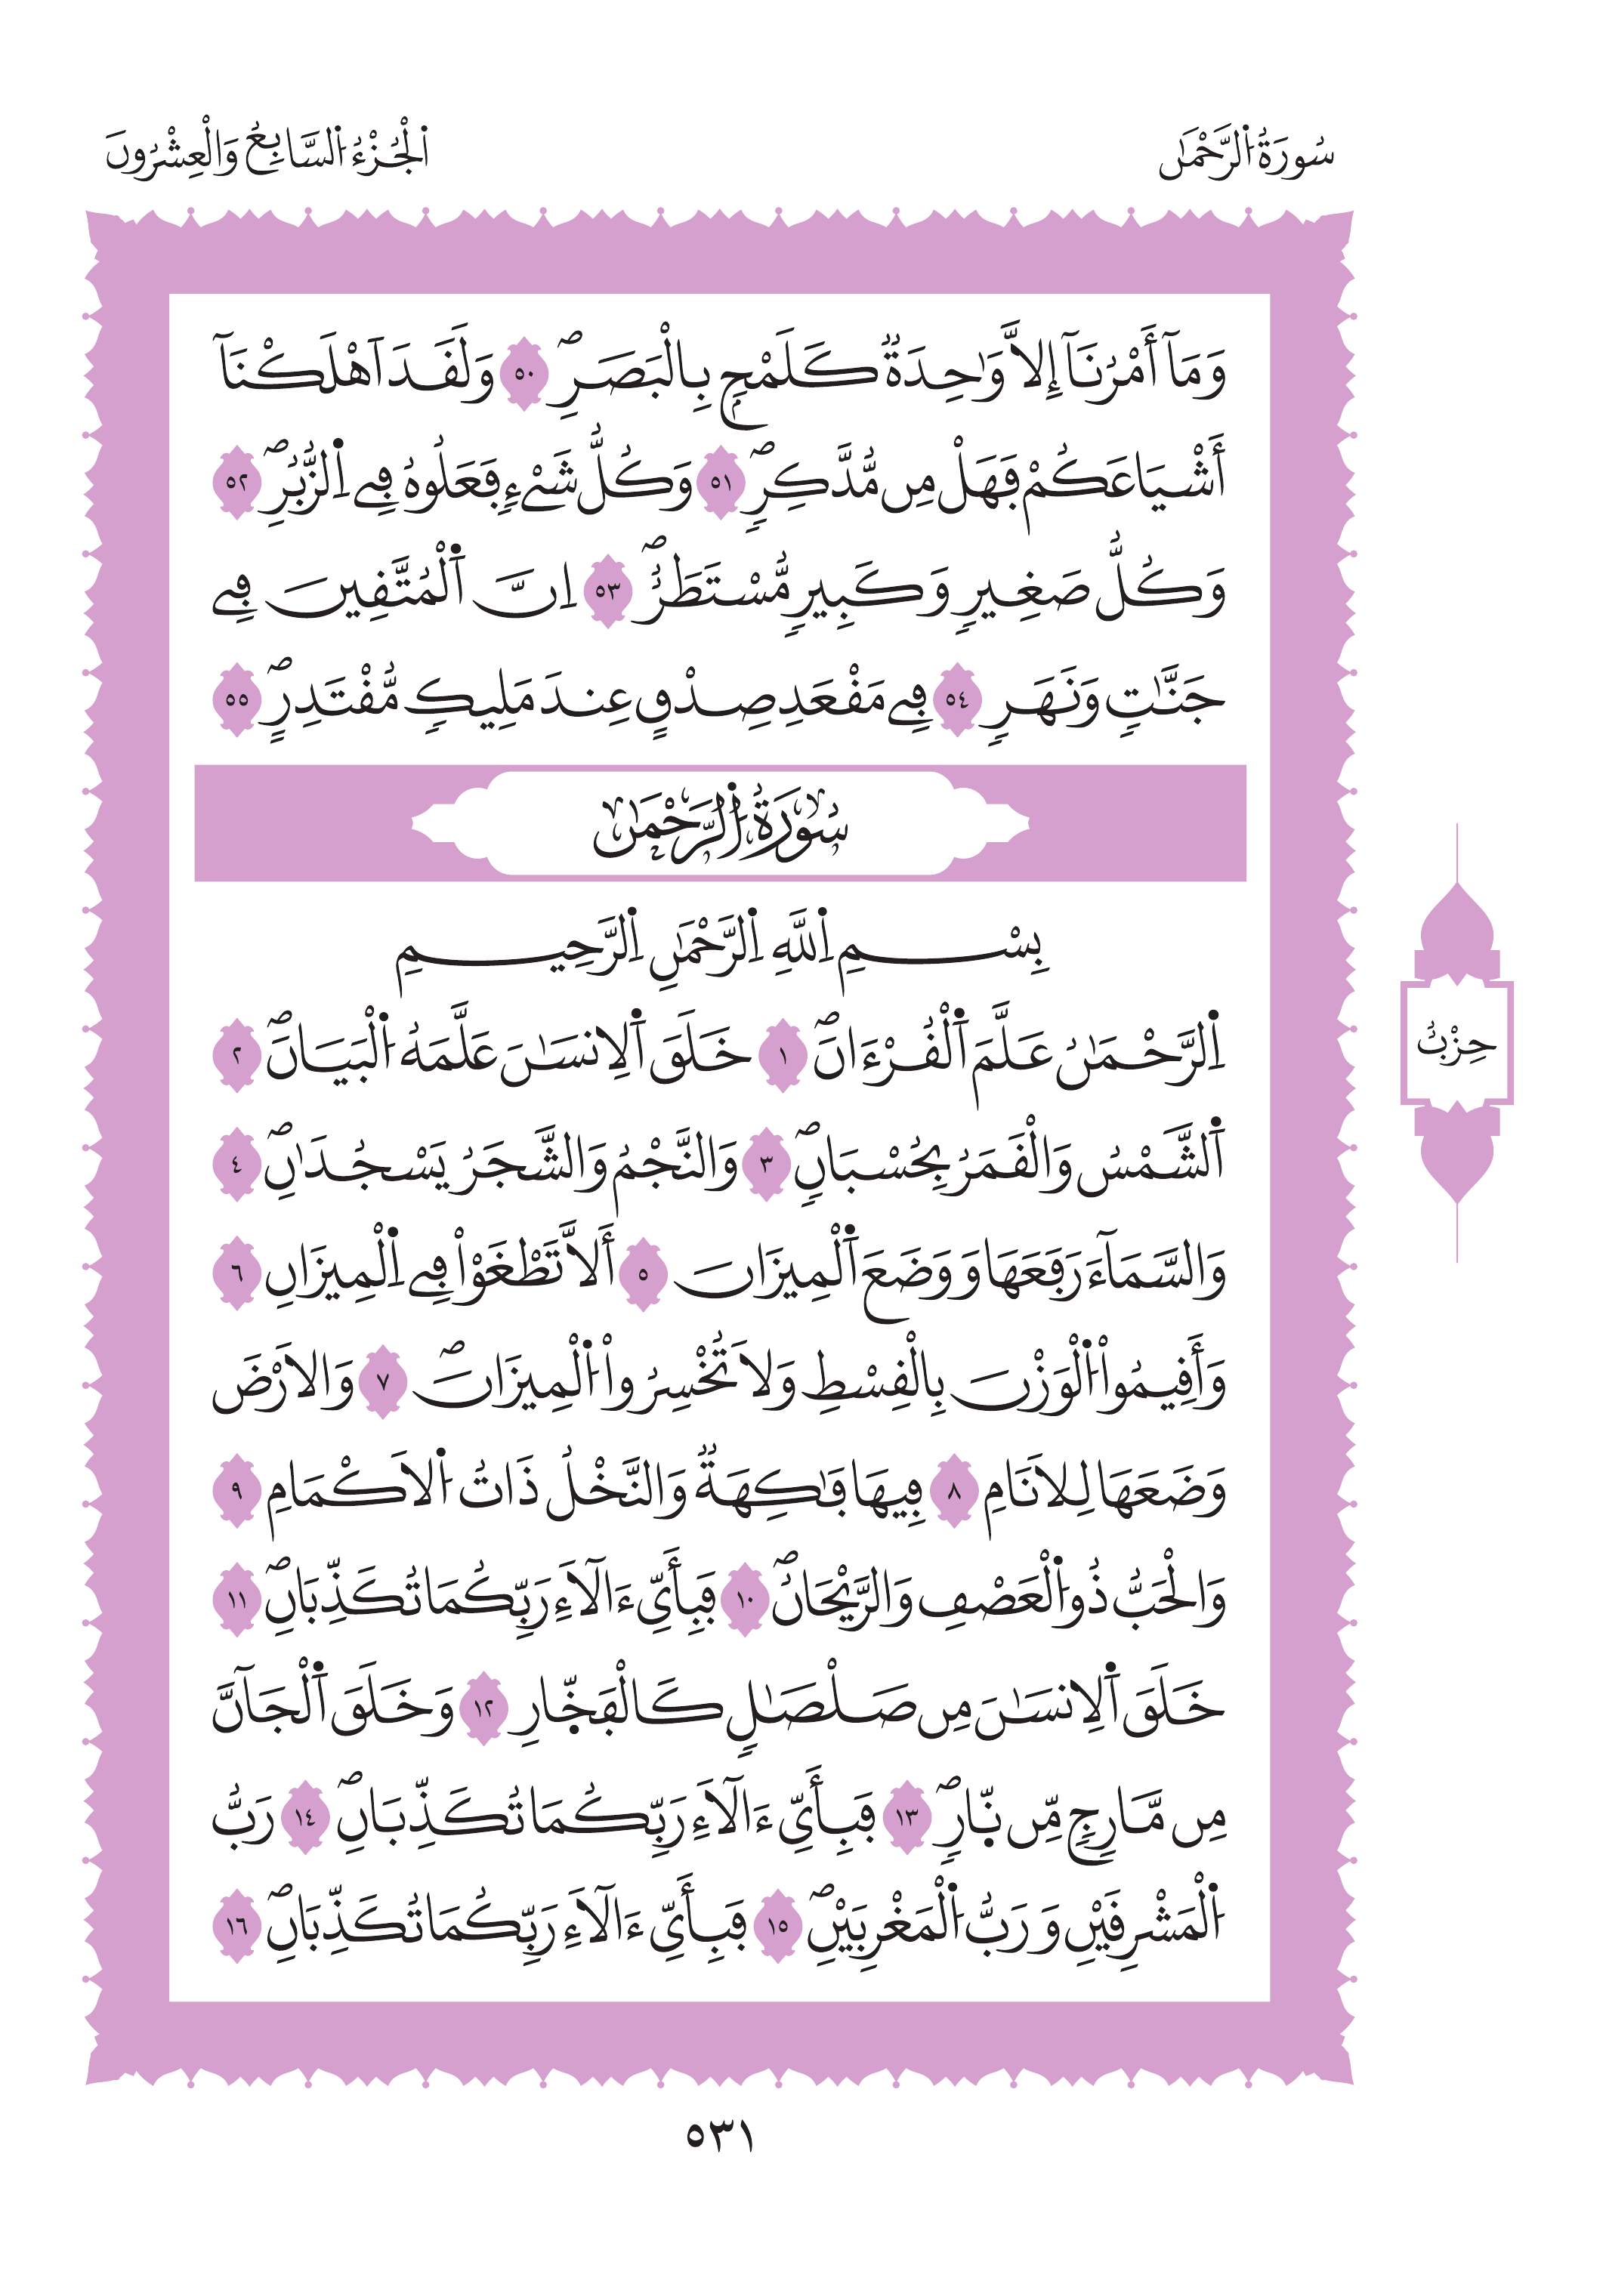 سُورَةُ الرَّحْمَٰن
اَلْجُزْءُ السَّابِعُ وَالْعِشْرُونَ
وَمَآ أَمْرُنَآ إِلاَّ وَٰحِدَةٞ كَلَمْحِۢ بِالْبَصَرِۖ ٥٠ وَلَقَدَ اَهْلَكْنَآ
أَشْيَاعَكُمْ فَهَلْ مِن مُّدَّكِرٖۖ ٥١ وَكُلُّ شَےْءٖ فَعَلُوهُ فِے اِ۬لزُّبُرِۖ ٥٢
وَكُلُّ صَغِيرٖ وَكَبِيرٖ مُّسْتَطَرٌۖ ٥٣ اِنَّ اَ۬لْمُتَّقِينَ فِے
جَنَّٰتٖ وَنَهَرٖ ٥٤ فِے مَقْعَدِ صِدْقٍ عِندَ مَلِيكٖ مُّقْتَدِرٖۖ ٥٥
سُورَةُ الرَّحْمَٰن
بِسْمِ اِ۬للَّهِ اِ۬لرَّحْمَٰنِ اِ۬لرَّحِيمِ
اِ۬لرَّحْمَٰنُ عَلَّمَ اَ۬لْقُرْءَانَۖ ١ خَلَقَ اَ۬لِانسَٰنَ عَلَّمَهُ اُ۬لْبَيَانَۖ ٢
اَ۬لشَّمْسُ وَالْقَمَرُ بِحُسْبَانٖۖ ٣ وَالنَّجْمُ وَالشَّجَرُ يَسْجُدَٰنِۖ ٤
وَالسَّمَآءَ رَفَعَهَا وَوَضَعَ اَ۬لْمِيزَانَ ٥ أَلاَّ تَطْغَوْاْ فِے اِ۬لْمِيزَانِ ٦
وَأَقِيمُواْ اُ۬لْوَزْنَ بِالْقِسْطِ وَلاَ تُخْسِرُواْ اُ۬لْمِيزَانَۖ ٧ وَالَارْضَ
وَضَعَهَا لِلَانَامِ ٨ فِيهَا فَٰكِهَةٞ وَالنَّخْلُ ذَاتُ اُ۬لَاكْمَامِ ٩
وَالْحَبُّ ذُو اُ۬لْعَصْفِ وَالرَّيْحَانُۖ ١٠ فَبِأَيِّ ءَالَآءِ رَبِّكُمَا تُكَذِّبَانِۖ ١١
خَلَقَ اَ۬لِانسَٰنَ مِن صَلْصَٰلٖ كَالْفَخّ۪ارِ ١٢ وَخَلَقَ اَ۬لْجَآنَّ
مِن مَّارِجٖ مِّن نّ۪ارٖۖ ١٣ فَبِأَيِّ ءَالَآءِ رَبِّكُمَا تُكَذِّبَانِۖ ١٤ رَبُّ
اُ۬لْمَشْرِقَيْنِ وَرَبُّ اُ۬لْمَغْرِبَيْنِۖ ١٥ فَبِأَيِّ ءَالَآءِ رَبِّكُمَا تُكَذِّبَانِۖ ١٦
حِزْبُ
٥٣١